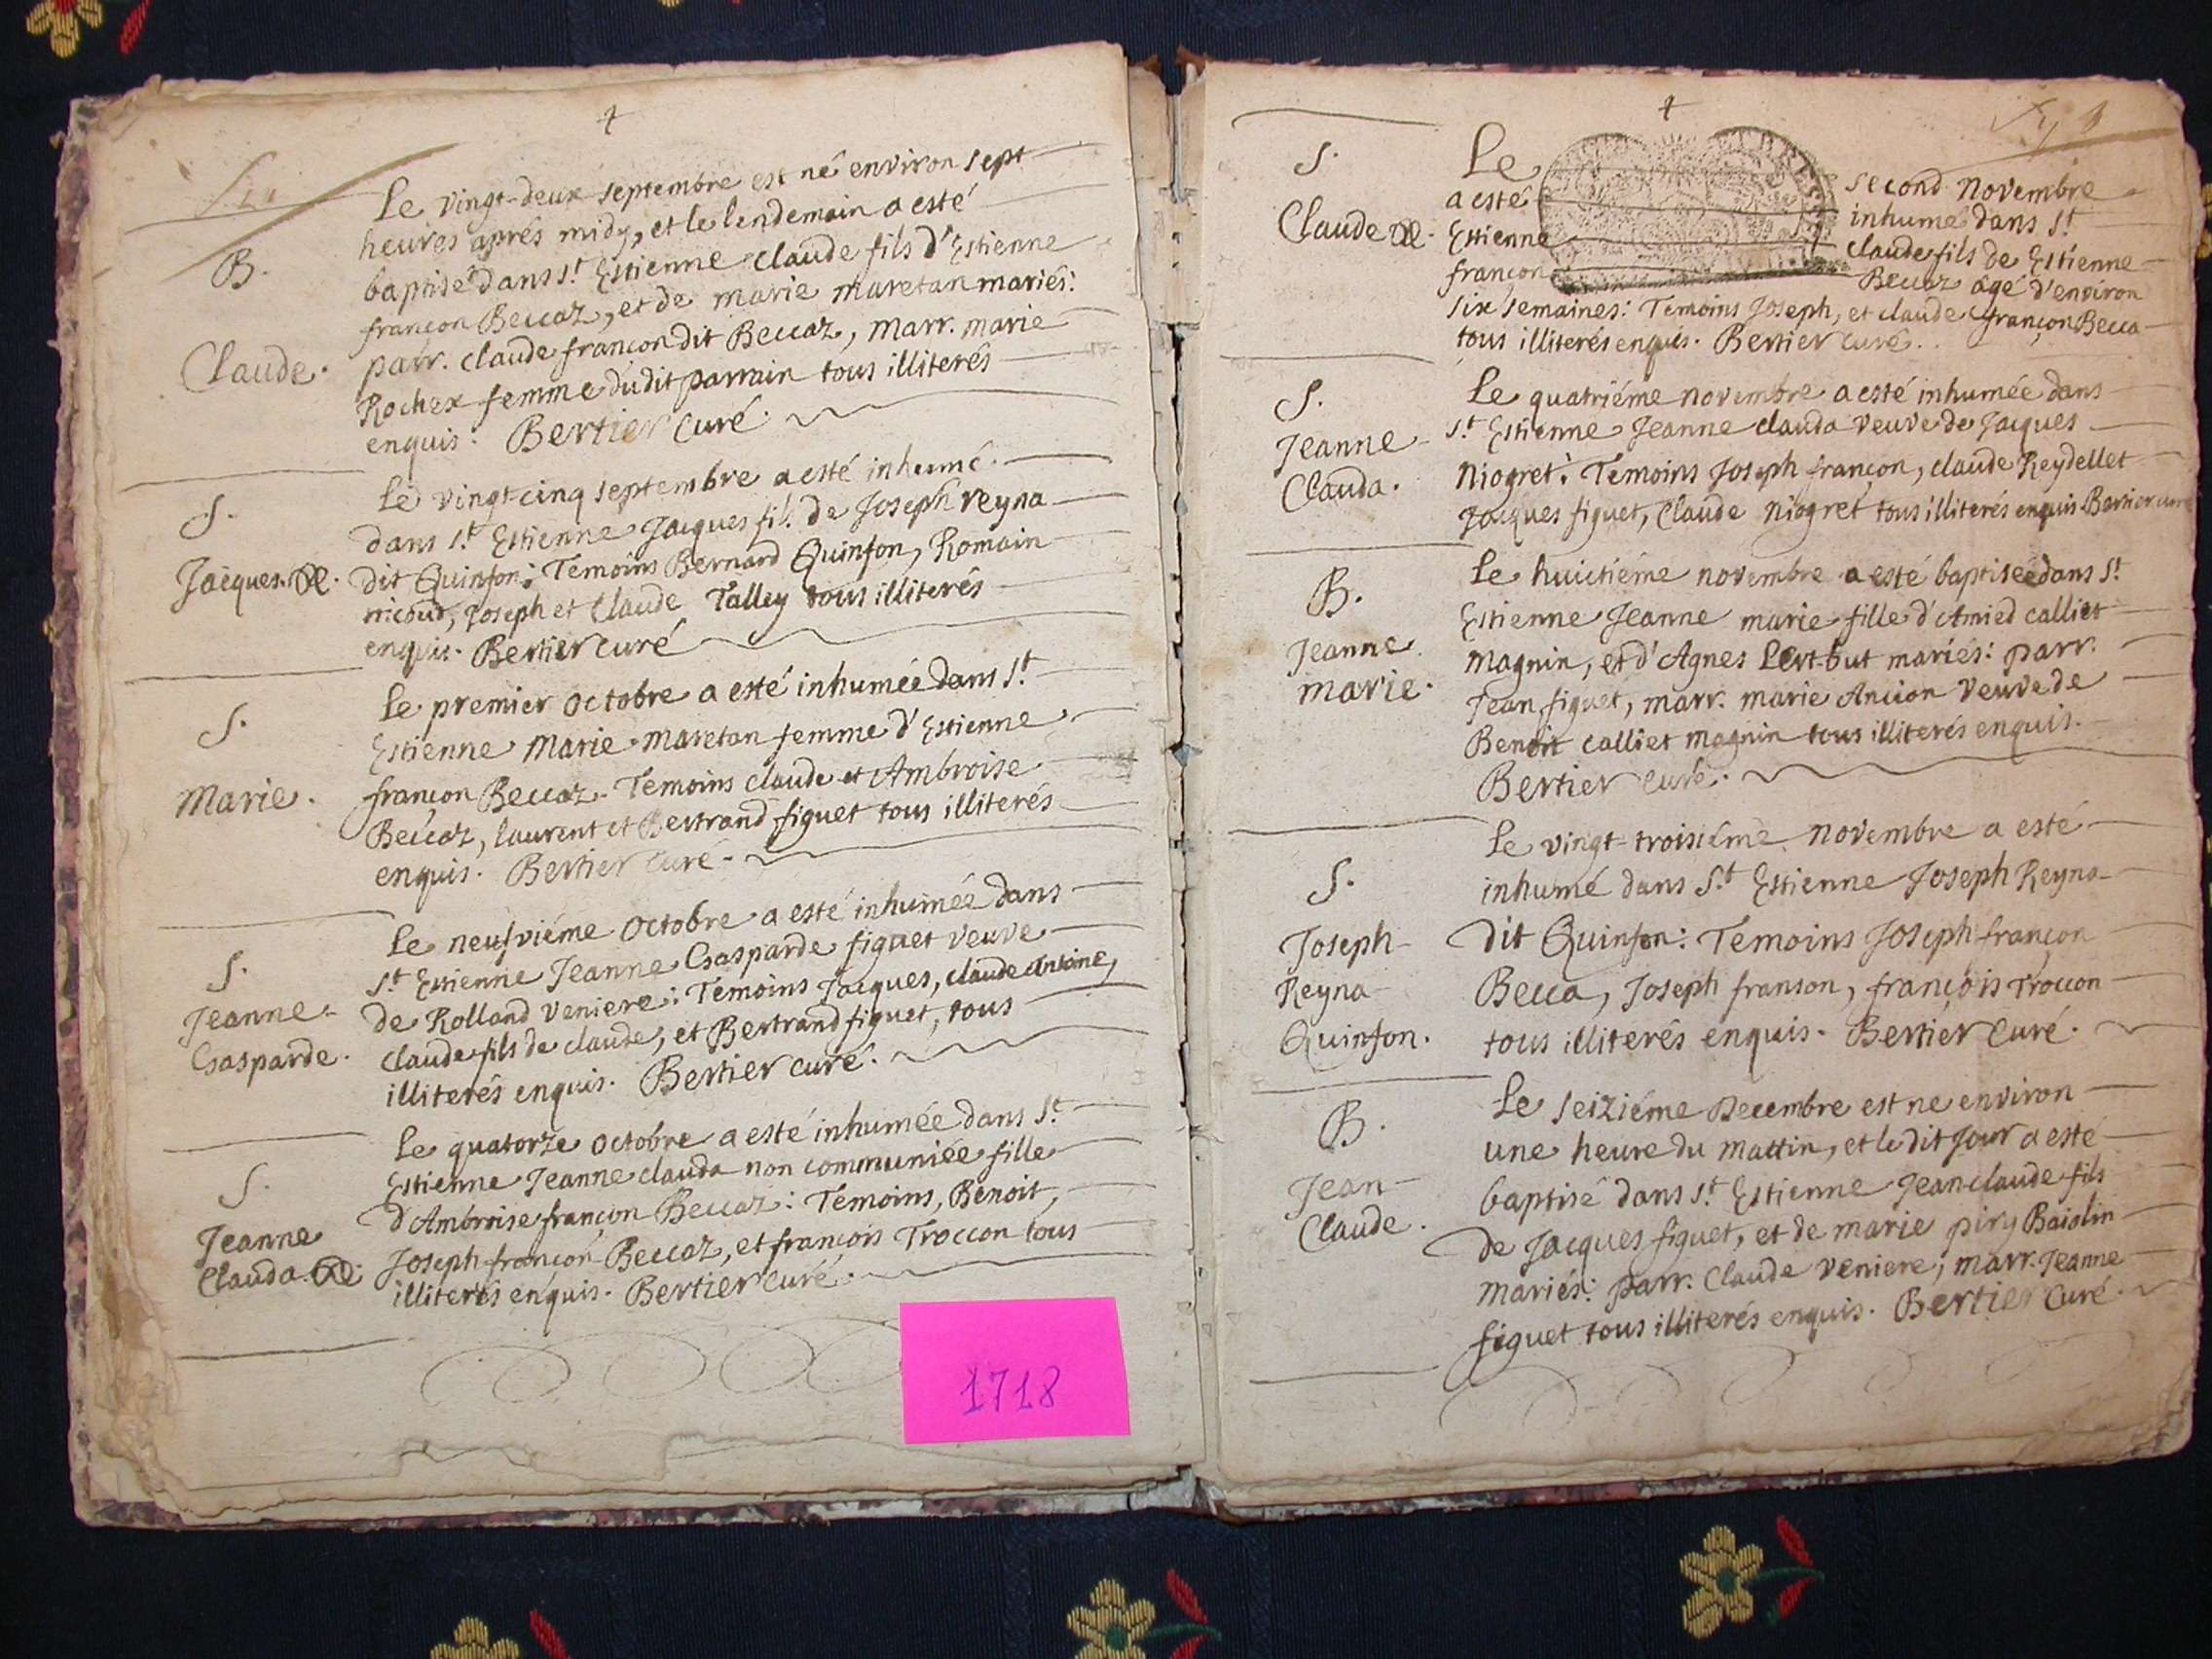 Le vingt-deux septembre est né environ sept
heures aprés midy, et le lendemain a esté
B.
baptisé dans s.t Estienne claude fils d'Estienne
françon Beccaz, et de marie maretan mariés:
Claude.
parr. claude françon dit Beccaz, marr. marie
Rochex femme dudit parrain tous illiterés
enquis: Bertier Curé.
Le vingt-cinq septembre a esté inhumé
S.
dans s.t Estienne Jacques fil. de Joseph reyna
Jacques. æ.
dit Quinson: Temoins Bernard Quinson, Romain
nicoud, Joseph et Claude Talley tous illiterés
enquis. Bertier curé
Le premier octobre a esté inhumée dans s.t
S.
Estienne Marie maretan femme d'Estienne
Marie.
françon Beccaz. Temoins claude et Ambroise
Beccaz, laurent et Bertrand figuet tous illiterés
enquis. Bertier curé.
Le neufviéme octobre a esté inhumée dans
S.
s.t Estienne Jeanne Gasparde figuet veuve
Jeanne
de Rolland veniere: Temoins Jacques, claude Antoine,
Gasparde.
claude fils de claude, et Bertrand figuet, tous
illiterés enquis. Bertier curé.
Le quatorze octobre a esté inhumée dans s.t
S.
Estienne Jeanne clauda non communiée fille
Jeanne
d'Ambroise françon Beccaz: Temoins, Benoit,
Clauda. æ.
Joseph françon Beccaz, et françois Troccon tous
illiterés enquis. Bertier curé.
1718
S.
Le second novembre
a esté inhumé dans s.t
Claude æ.
Estienne claude fils de Estienne
françon Beccaz agé d'environ
six semaines: Temoins Joseph, et claude françon Becca
tous illiterés enquis. Bertier curé.
S.
Le quatriéme novembre a esté inhumée dans
Jeanne
s.t Estienne Jeanne clauda veuve de Jacques
Clauda.
Niogret: Temoins Joseph françon, claude Reydellet
Jacques figuet, Claude niogret tous illiterés enquis Bertier curé
B.
Le huictiéme novembre a esté baptisée dans s.t
Estienne Jeanne marie fille d'Amied calliet
Jeanne
magnin, et d'Agnes mariés: parr.
marie.
Jean figuet, marr. marie Ancion veuve de
Benoit calliet magnin tous illiterés enquis.
Bertier curé.
Le vingt-troisiéme novembre a esté
S.
inhumé dans s.t Estienne Joseph Reyna
Joseph
dit Quinson: Temoins Joseph françon
Reyna
Becca, Joseph franson, françois Troccon
Quinson.
tous illiterés enquis. Bertier curé.
B.
Le seiziéme Decembre est ne environ
une heure du mattin, et le dit Jour a esté
Jean
baptisé dans s.t Estienne Jeanclaude fils
Claude.
de Jacques figuet, et de marie piry Baiolin
mariés: parr. Claude veniere; marr. Jeanne
figuet tous illiterés enquis. Bertier curé.